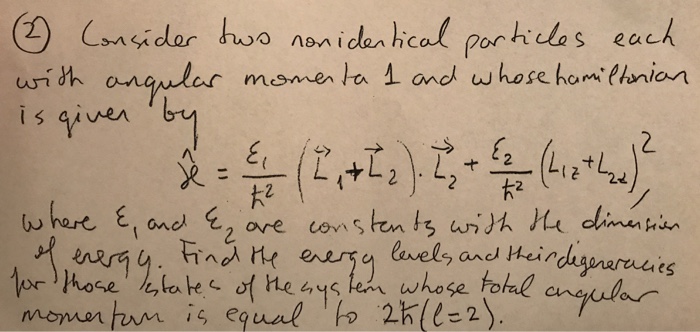 ② Consider two nonidentical particles each
with angular momenta 1 and whose hamiltonian
is given by
Ĥ = ε₁/ħ² (L⃗₁+L⃗₂)·L⃗₂ + ε₂/ħ² (L₁z+L₂z)²,
where ε₁ and ε₂ are constants with the dimension
of energy. Find the energy levels and their degeneracies
for those states of the system whose total angular
momentum is equal to 2ħ (l=2).